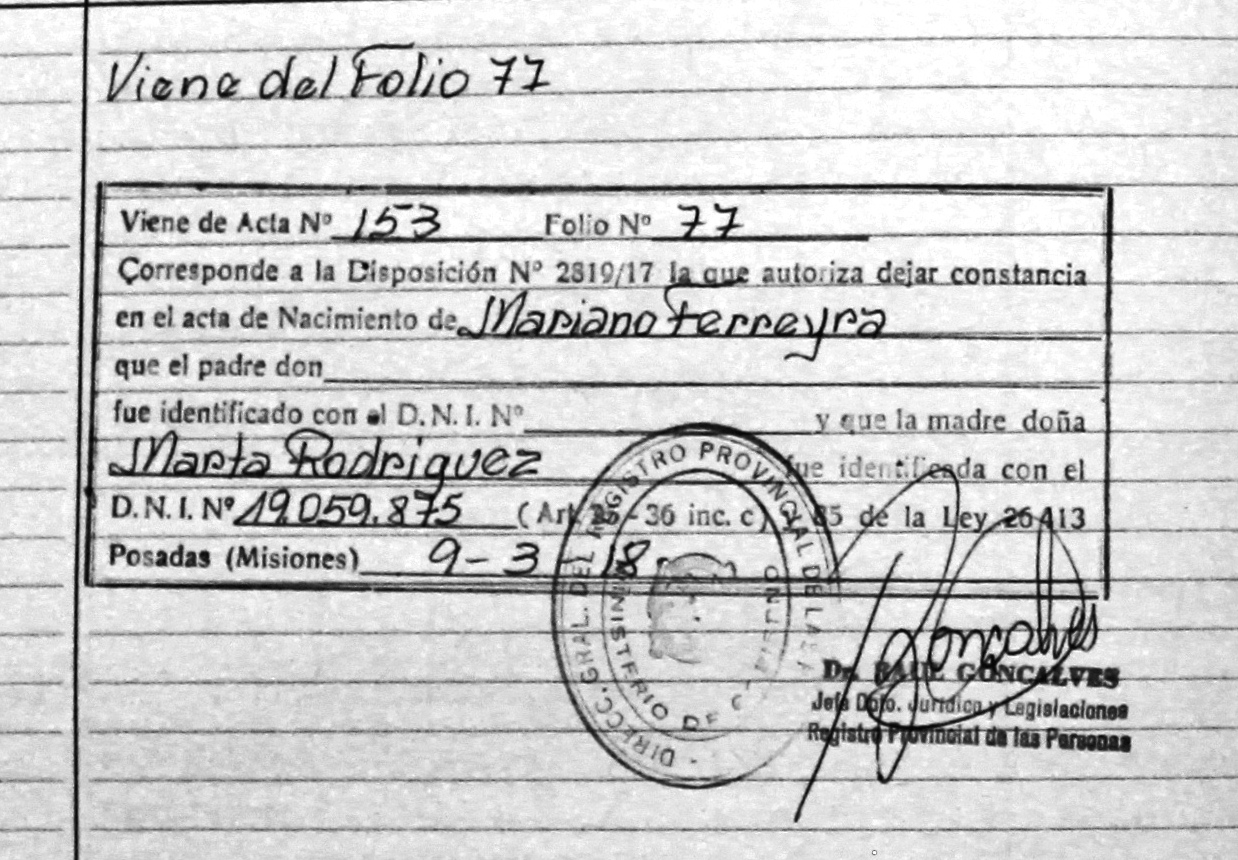 Viene del Folio 77
Viene de Acta Nº 153 Folio Nº 77
Corresponde a la Disposición Nº 2819/17 la que autoriza dejar constancia
en el acta de Nacimiento de Mariano Ferreyra
que el padre don
fue identificado con el D.N.I. Nº y que la madre doña
Marta Rodriguez fue identificada con el
D.N.I. Nº 19.059.875 (Art. 36 inc. c) y 85 de la Ley 26413
Posadas (Misiones) 9-3 18
DIRECC. GRAL. DEL REGISTRO PROVINCIAL DE LAS
MINISTERIO DE
Goncalves
Dr. RAUL GONCALVES
Jefe Dpto. Jurídico y Legislaciones
Registro Provincial de las Personas